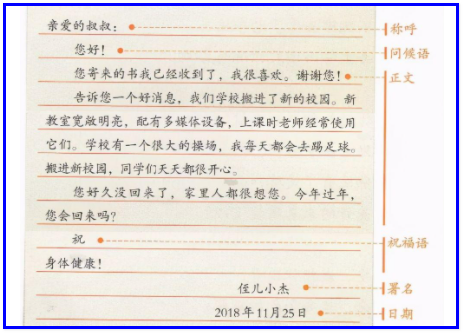 亲爱的叔叔： 称呼
您好！ 问候语
您寄来的书我已经收到了，我很喜欢。谢谢您！ 正文
告诉您一个好消息，我们学校搬进了新的校园。新
教室宽敞明亮，配有多媒体设备，上课时老师经常使用
它们。学校有一个很大的操场，我每天都会去踢足球。
搬进新校园，同学们天天都很开心。
您好久没回来了，家里人都很想您。今年过年，
您会回来吗？
祝 祝福语
身体健康！
侄儿小杰 署名
2018年11月25日 日期